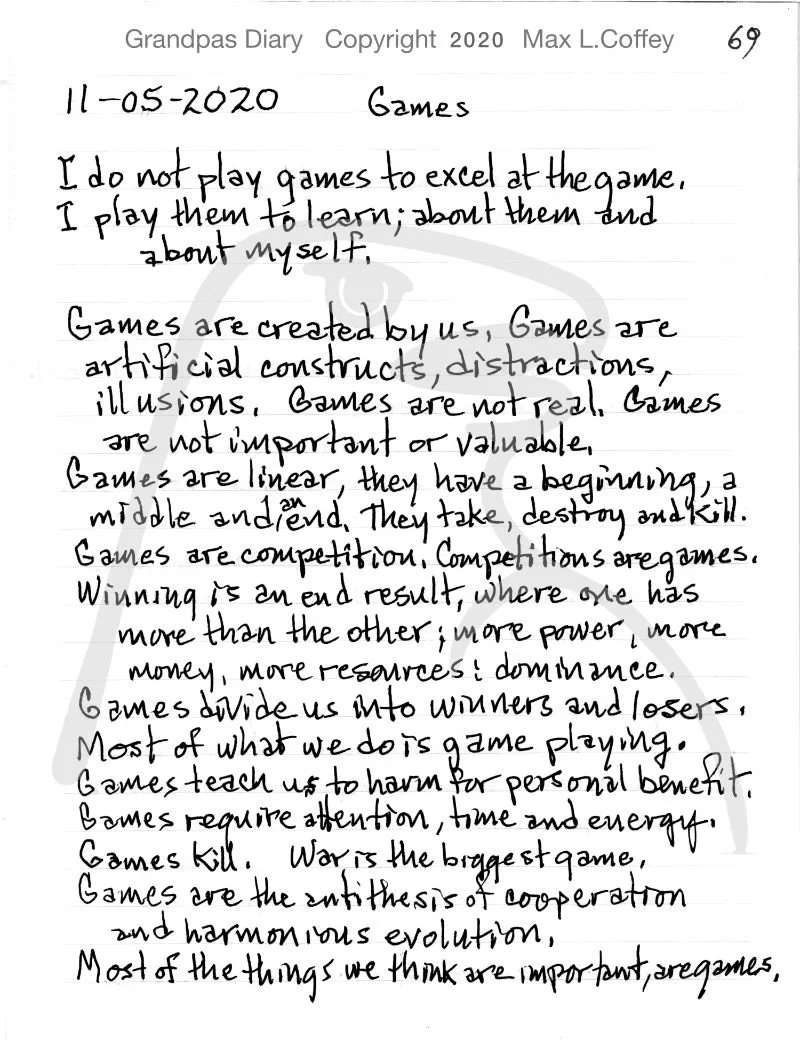 Grandpas Diary Copyright 2020 Max L.Coffey 69
11-05-2020 Games
I do not play games to excel at the game.
I play them to learn; about them and
about myself.
Games are created by us. Games are
artificial constructs, distractions,
illusions. Games are not real. Games
are not important or valuable.
Games are linear, they have a beginning, a
middle and an end. They take, destroy and kill.
Games are competition. Competitions are games.
Winning is an end result, where one has
more than the other; more power, more
money, more resources: dominance.
Games divide us into winners and losers.
Most of what we do is game playing.
Games teach us to harm for personal benefit.
Games require attention, time and energy.
Games Kill. War is the biggest game.
Games are the antithesis of cooperation
and harmonious evolution.
Most of the things we think are important, are games.